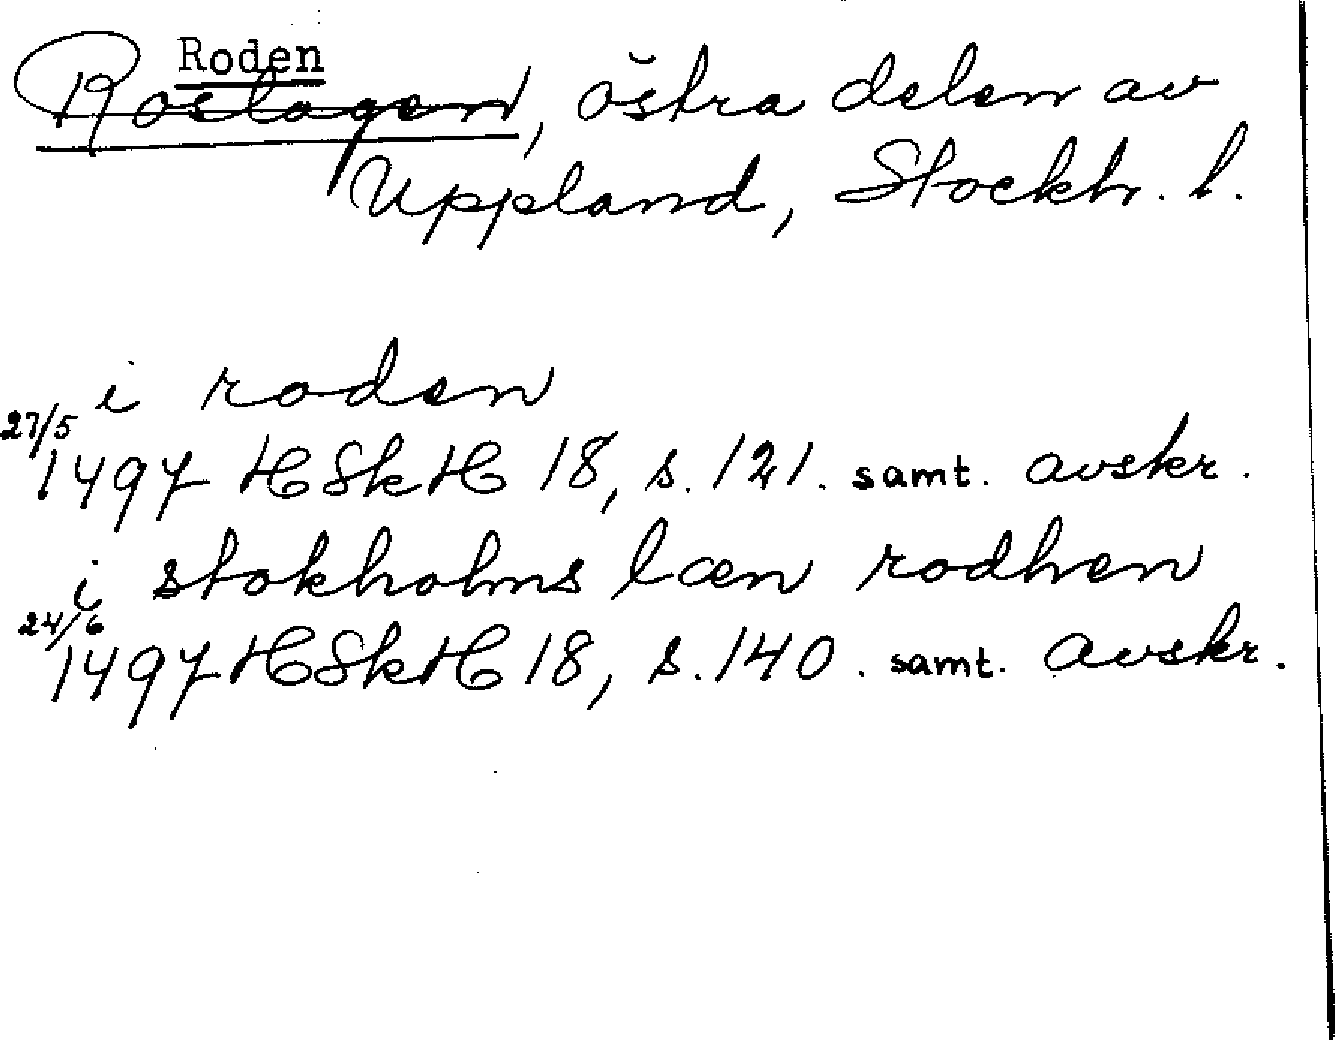 Roden
Roslagen, östra delen av
Uppland, Stockh. l.
i roden
27/5
1497 HSkH 18, s. 121. samt. avskr.
i stokholms læn rodhen
24/6
1497 HSkH 18, s. 140. samt. avskr.